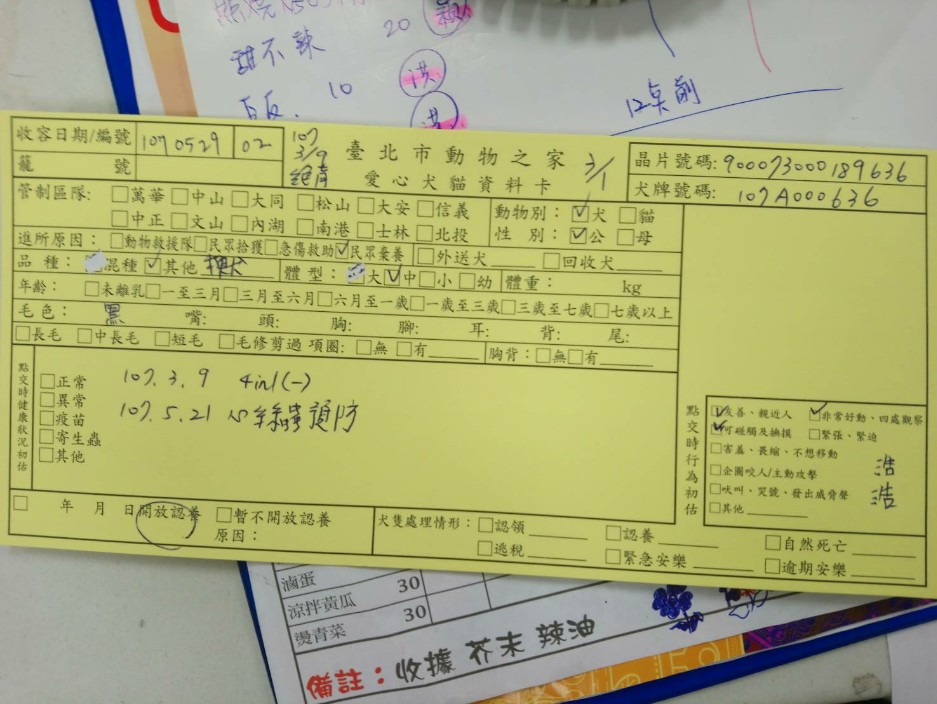 甜不辣 20
豆皮. 10 洪
12桌前
收容日期/編號 1070529 02
籠 號
107 3/9 絕育
臺北市動物之家 3/1
愛心犬貓資料卡
晶片號碼: 900073000189636
犬牌號碼: 107A000636
管制區隊: □萬華□中山□大同 □松山□大安□信義 動物別: ☑犬 □貓
□中正□文山□內湖 □南港□士林□北投 性 別: ☑公 □母
進所原因: □動物救援隊□民眾拾獲□急傷救助☑民眾棄養 □外送犬 □回收犬
品 種: 混種☑其他 體 型: 大☑中□小□幼 體重: kg
年齡: □未離乳□一至三月□三月至六月□六月至一歲□一歲至三歲□三歲至七歲□七歲以上
毛色: 黑 嘴: 頭: 胸: 腳: 耳: 背: 尾:
□長毛 □中長毛 □短毛 □毛修剪過 項圈: □無 □有 胸背: □無□有
點交時健康狀況初估
□正常 107.3.9 4in1(-)
□異常 107.5.21 心絲蟲預防
□疫苗
□寄生蟲
□其他
點交時行為初估
☑友善、親近人 ☑非常好動、四處觀察
☑可碰觸及撫摸 □緊張、緊迫
□害羞、畏縮、不想移動
□企圖咬人/主動攻擊
□吠叫、哭號、發出威脅聲
□其他
浩浩
□ 年 月 日開放認養 □暫不開放認養
原因:
犬隻處理情形: □認領 □認養 □自然死亡
□逃稅 □緊急安樂 □逾期安樂
滷蛋 30
涼拌黃瓜 30
燙青菜 30
備註: 收據 芥末 辣油